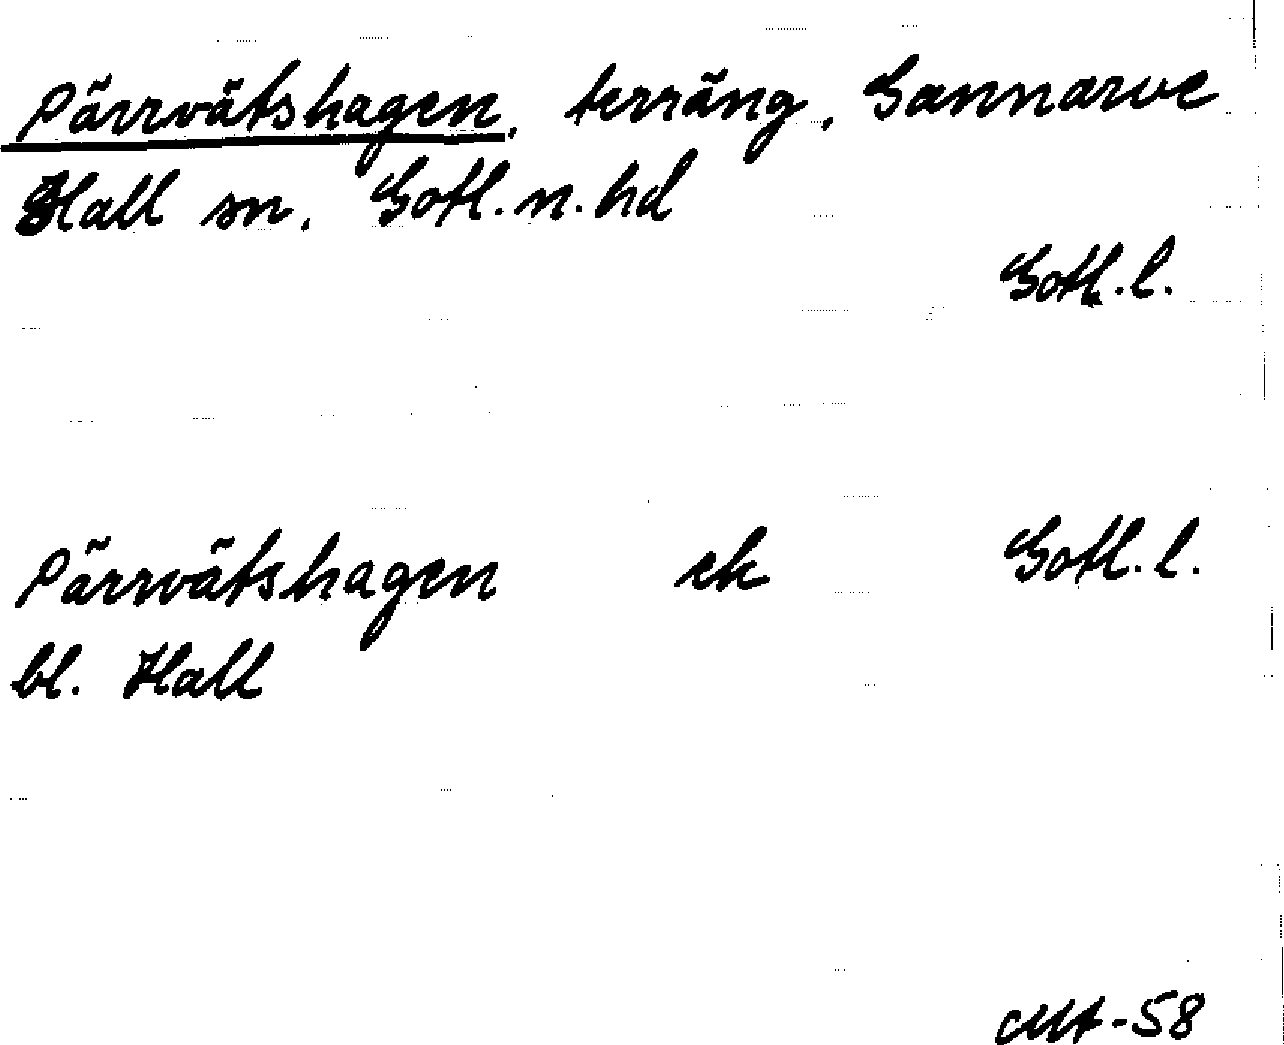 Pärrvätshagen, terräng, Gannarve
Hall sn. Gotl. n. hd
Gotl. l.
Pärrvätshagen ek Gotl. l.
bl. Hall
-58